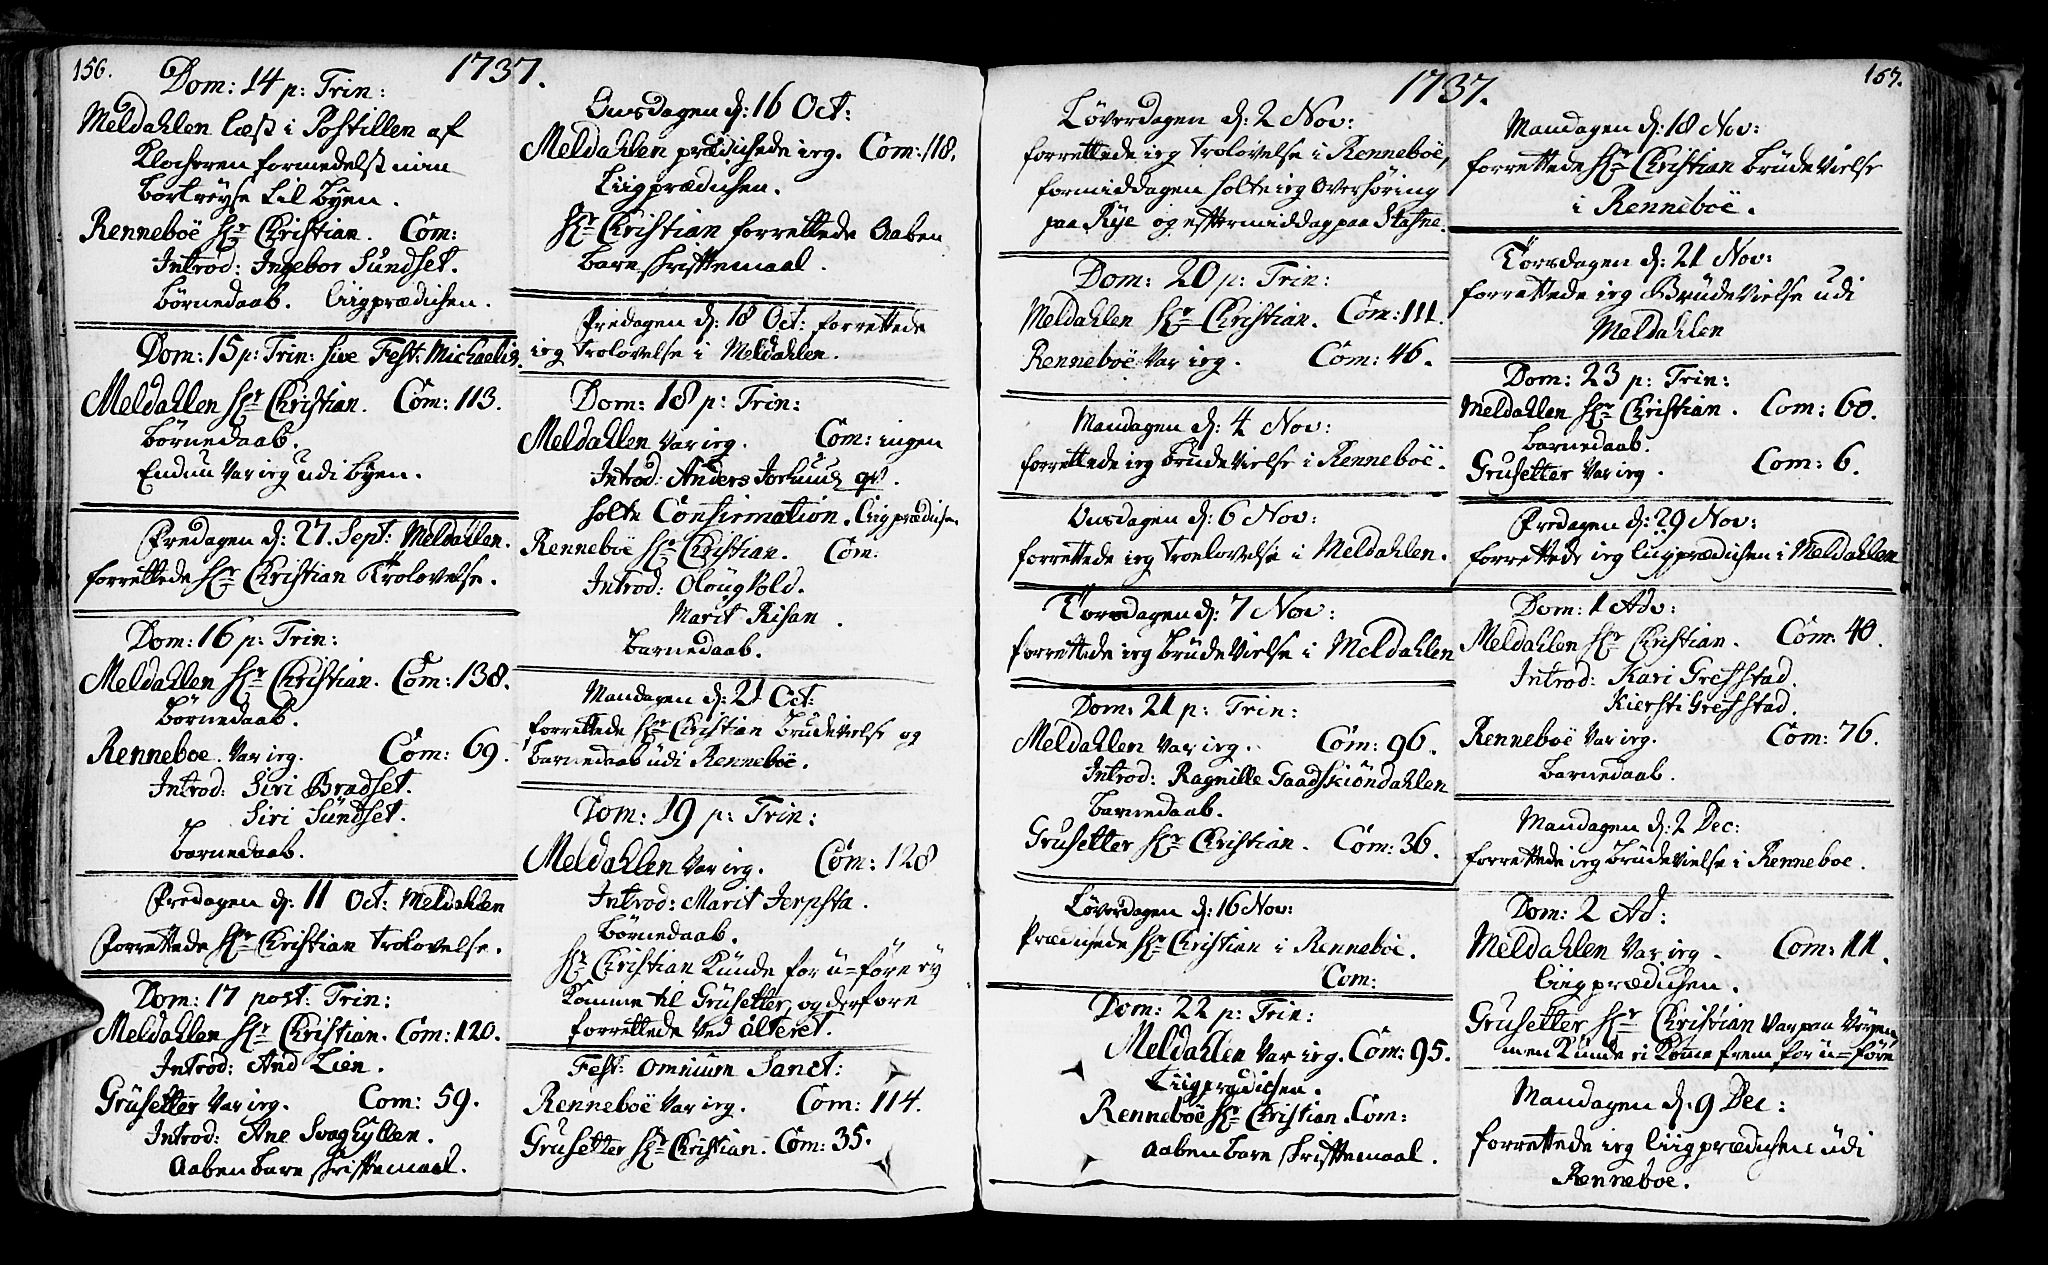 156.
1737.
Dom: 14 p: Trin:
Meldahlen læst i Postillen af
Klocheren formedelst min
bortreyse til Byen.
Renneboe Hr Christian. Com:
Introd: Ingebor Sundset.
Börnedaab. Liigprædichen.
Dom: 15 p: Trin: sive Fest: Michaelis.
Meldahlen Hr Christian. Com: 113.
Börnedaab.
Endnu var ieg udi Byen.
Fredagen d: 27. Sept: Meldahlen.
forrettede Hr Christian Trolovelse.
Dom: 16 p: Trin:
Meldahlen Hr Christian. Com: 138.
Börnedaab.
Renneboe var ieg. Com: 69.
Introd: Siri Bradset.
Siri Sundset.
Barnedaab.
Fredagen d: 11 Oct: Meldahlen
forrettede Hr Christian Trolovelse.
Dom: 17 post: Trin:
Meldahlen Hr Christian. Com: 120.
Introd: And Lien.
Grusetter var ieg. Com: 59.
Introd: Ane Svaghyllen.
Aabenbare skriftemaal.
Onsdagen d: 16 Oct:
Meldahlen prædichede ieg. Com: 118.
Liigprædichen.
Hr Christian forrettede Aaben
bare skriftemaal.
Fredagen d: 18 Oct: forrettede
ieg Trolovelse i Meldahlen.
Dom: 18 p: Trin:
Meldahlen var ieg. Com: ingen
Introd: Anders qv.
holte Confirmation. Liigprædichen
Renneboe Hr Christian. Com:
Introd: Oloug Vold.
Marit Risan.
Barnedaab.
Mandagen d: 21 Oct:
forrettede Hr Christian Brudevielse og
Barnedaab udi Renneboe.
Dom: 19 p: Trin:
Meldahlen var ieg. Com: 128
Introd: Marit Jerpsta.
Börnedaab.
Hr Christian kunde for u=före ey
komme til Grusetter, og derfore
forrettede ved alteret.
Fest: Omnium Sanct:
Renneboë var ieg. Com: 114.
Grusetter Hr Christian. Com: 35.
157.
1737.
Löverdagen d: 2 Nov:
forrettede ieg Trolovelse i Renneboe,
formiddagen holte ieg Overhöring
paa Rye og eftermiddag paa Stafne.
Dom: 20 p: Trin:
Meldahlen Hr Christian. Com: 111.
Renneboë var ieg. Com: 46.
Mandagen d: 4 Nov:
forrettede ieg Brudevielse i Renneboë.
Onsdagen d: 6 Nov:
forrettede ieg Troelovelse i Meldahlen.
Torsdagen d: 7 Nov:
forrettede ieg Brudevielse i Meldahlen
Dom: 21 p: Trin:
Meldahlen var ieg. Com: 96.
Introd: Ragnille Gaadskiöndahlen
Barnedaab.
Grusetter Hr Christian. Com: 36.
Löverdagen d: 16 Nov:
Prædichede Hr Christian i Renneboë.
Com:
Dom: 22 p: Trin:
Meldahlen var ieg. Com: 95.
Liigprædichen.
Renneboë Hr Christian. Com:
Aabenbare skriftemaal.
Mandagen d: 18 Nov:
forrettede Hr Christian Brudevielse
i Renneboë.
Torsdagen d: 21 Nov:
forrettede ieg Brudevielse udi
Meldahlen
Dom: 23 p: Trin:
Meldahlen Hr Christian. Com: 60.
Barnedaab.
Grusetter var ieg. Com: 6.
Fredagen d: 29 Nov:
forrettede ieg liigprædichen i Meldahlen
Dom: 1 Adv:
Meldahlen Hr Christian. Com: 40.
Introd: Kari Grefstad.
Kiersti Grefstad.
Renneboë var ieg. Com: 76.
Barnedaab.
Mandagen d: 2 Dec:
forrettede ieg Brudevielse i Renneboe.
Dom: 2 Ad:
Meldahlen var ieg. Com: 11.
Liigprædichen.
Grusetter Hr Christian var paa Veyen
men kunde ei komme frem for u=före
Mandagen d: 9 Dec:
forrettede ieg liigprædichen udi
Renneboe.